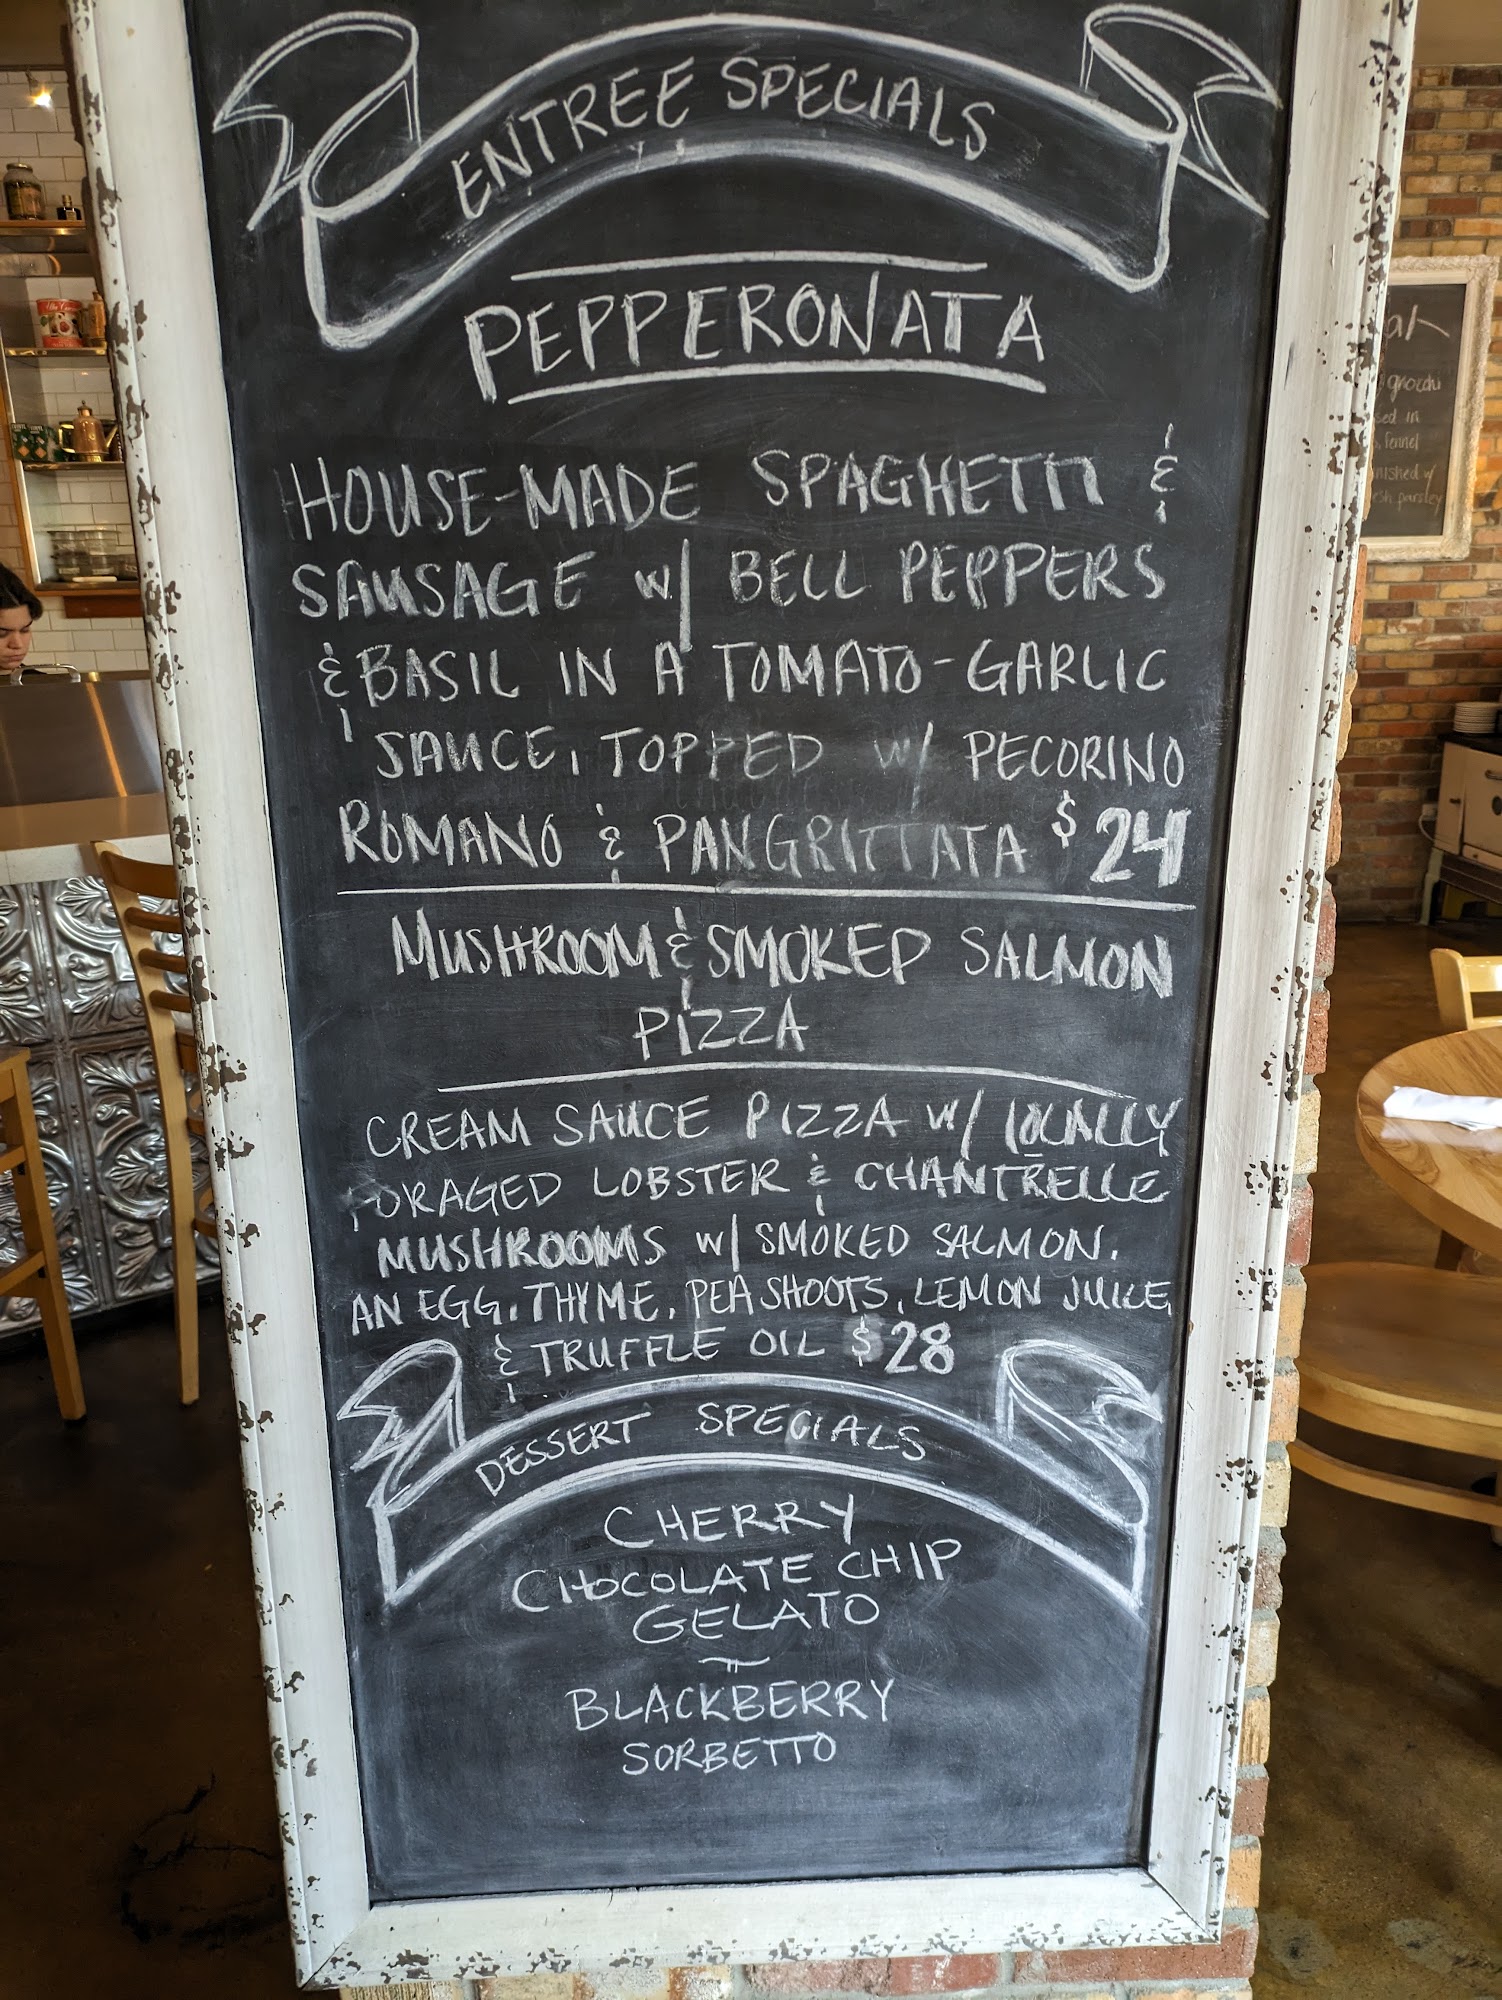 ENTREE SPECIALS
PEPPERONATA
HOUSE-MADE SPAGHETTI &
SAUSAGE w/ BELL PEPPERS
& BASIL IN A TOMATO-GARLIC
SAUCE, TOPPED w/ PECORINO
ROMANO & PANGRITTATA $24
MUSHROOM & SMOKED SALMON
PIZZA
CREAM SAUCE PIZZA w/ LOCALLY
FORAGED LOBSTER & CHANTRELLE
MUSHROOMS w/ SMOKED SALMON,
AN EGG, THYME, PEA SHOOTS, LEMON JUICE,
& TRUFFLE OIL $28
DESSERT SPECIALS
CHERRY
CHOCOLATE CHIP
GELATO
BLACKBERRY
SORBETTO
gnocchi
in
fennel
w/
parsley